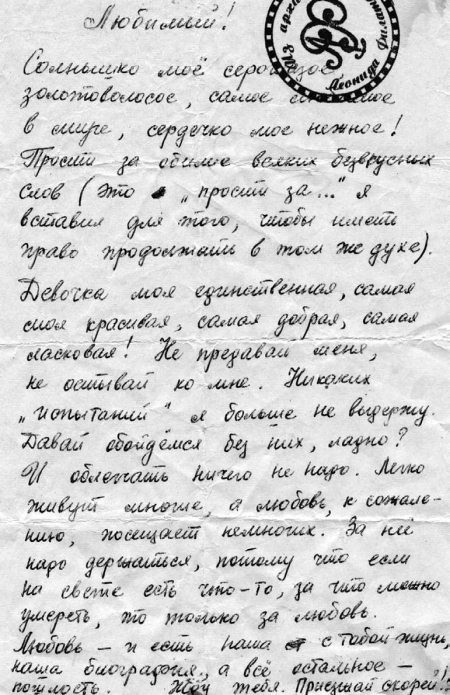 Любимый!
Из архива Леонида Филатова
Солнышко моё сероглазое
золотоволосое, самое
в мире, сердечко мое нежное!
Прости за обилие всяких безвкусных
слов (это „прости за..." я
вставил для того, чтобы иметь
право продолжать в том же духе).
Девочка моя единственная, самая
моя красивая, самая добрая, самая
ласковая! Не предавай меня,
не остывай ко мне. Никаких
„испытаний" я больше не выдержу.
Давай обойдёмся без них, ладно?
И облегчать ничего не надо. Легко
живут многие, а любовь, к сожале-
нию, посещает немногих. За неё
надо держаться, потому что если
на свете есть что-то, за что можно
умереть, то только за любовь.
Любовь – и есть наша с тобой жизнь,
наша биография, а всё остальное –
пошлость. Жду тебя. Приезжай скорей!